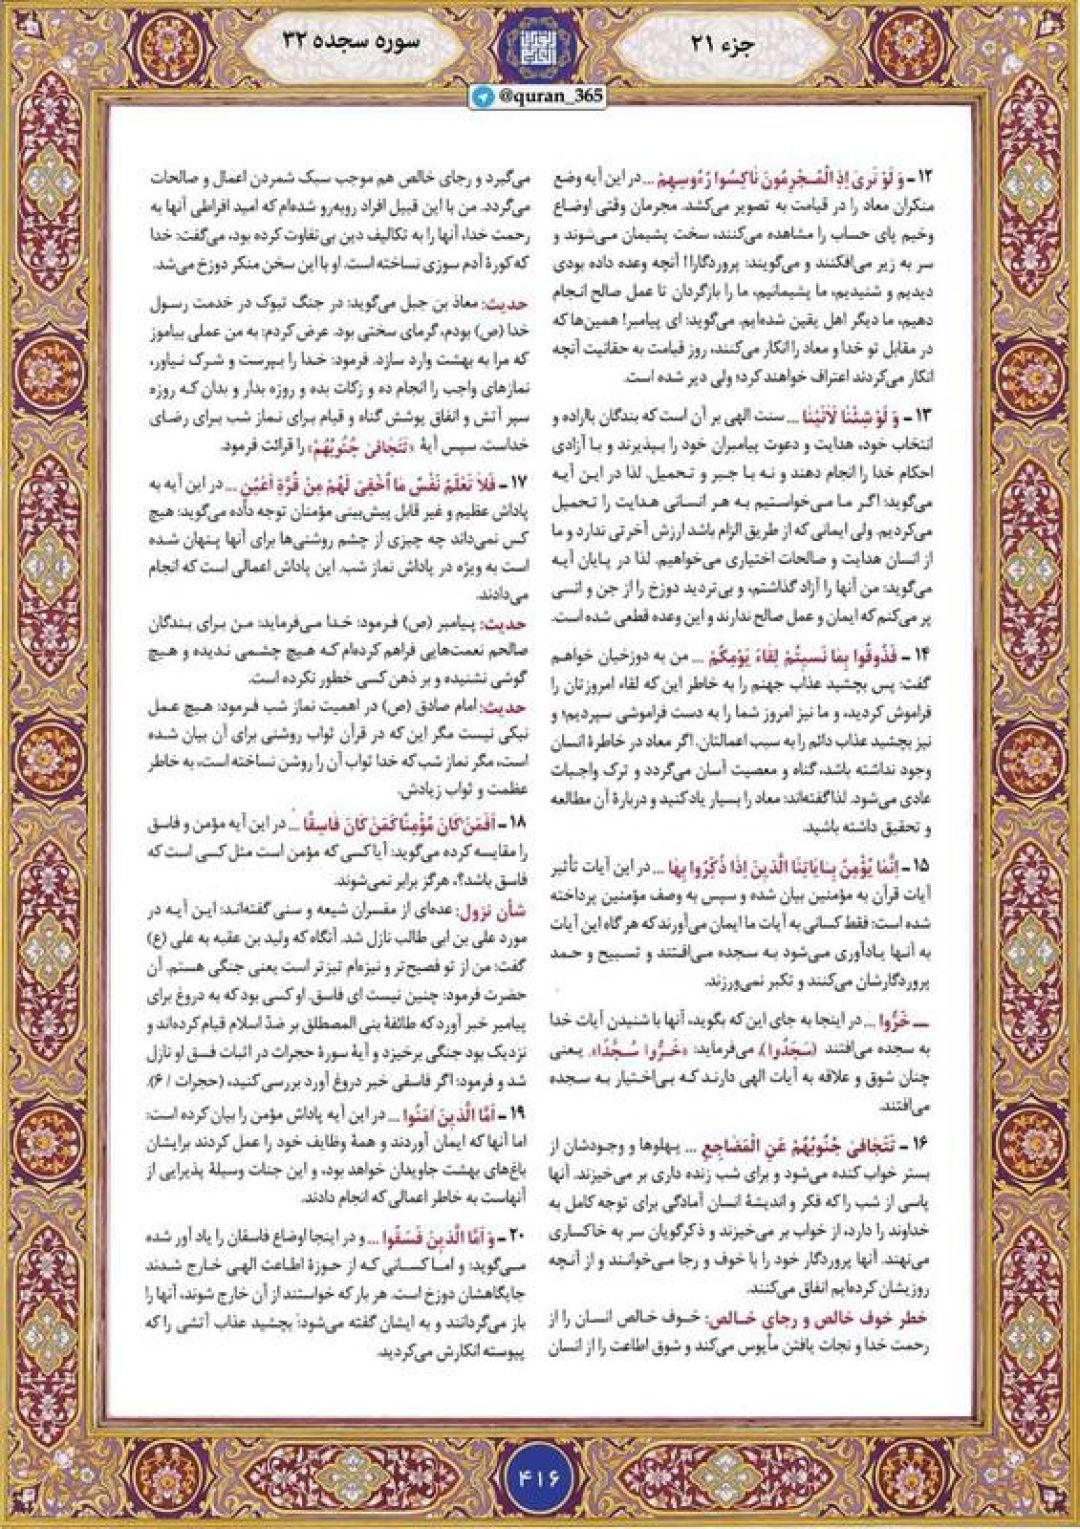 جزء ۲۱
سوره سجده ۳۲
@quran_365
۱۲ - وَ لَوْ تَرىٰ إِذِ الْمُجْرِمُونَ نٰاكِسُوا رُءُوسِهِمْ ... در این آیه وضع
منکران معاد را در قیامت به تصویر می‌کشد. مجرمان وقتی اوضاع
وخیم پای حساب را مشاهده می‌کنند، سخت پشیمان می‌شوند و
سر به زیر می‌افکنند و می‌گویند: پروردگارا! آنچه وعده داده بودی
دیدیم و شنیدیم، ما پشیمانیم، ما را بازگردان تا عمل صالح انجام
دهیم، ما دیگر اهل یقین شده‌ایم. می‌گوید: ای پیامبر! همین‌ها که
در مقابل تو خدا و معاد را انکار می‌کنند، روز قیامت به حقانیت آنچه
انکار می‌کردند اعتراف خواهند کرد؛ ولی دیر شده است.
۱۳ - وَ لَوْ شِئْنٰا لَآتَيْنٰا ... سنت الهی بر آن است که بندگان بااراده و
انتخاب خود، هدایت و دعوت پیامبران خود را بپذیرند و با آزادی
احکام خدا را انجام دهند و نه با جبر و تحمیل. لذا در این آیه
می‌گوید: اگر ما می‌خواستیم به هر انسانی هدایت را تحمیل
می‌کردیم. ولی ایمانی که از طریق الزام باشد ارزش آخرتی ندارد و ما
از انسان هدایت و صالحات اختیاری می‌خواهیم. لذا در پایان آیه
می‌گوید: من آنها را آزاد گذاشتم، و بی‌تردید دوزخ را از جن و انسی
پر می‌کنم که ایمان و عمل صالح ندارند و این وعده قطعی شده است.
۱۴ - فَذُوقُوا بِمٰا نَسِيتُمْ لِقٰاءَ يَوْمِكُمْ ... من به دوزخیان خواهم
گفت: پس بچشید عذاب جهنم را به خاطر این که لقاء امروزتان را
فراموش کردید، و ما نیز امروز شما را به دست فراموشی سپردیم؛ و
نیز بچشید عذاب دائم را به سبب اعمالتان. اگر معاد در خاطرهٔ انسان
وجود نداشته باشد، گناه و معصیت آسان می‌گردد و ترک واجبات
عادی می‌شود. لذا گفته‌اند: معاد را بسیار یاد کنید و دربارهٔ آن مطالعه
و تحقیق داشته باشید.
۱۵ - إِنَّمٰا يُؤْمِنُ بِـٔايٰاتِنَا الَّذِينَ إِذٰا ذُكِّرُوا بِهٰا ... در این آیات تأثیر
آیات قرآن به مؤمنین بیان شده و سپس به وصف مؤمنین پرداخته
شده است: فقط کسانی به آیات ما ایمان می‌آورند که هر گاه این آیات
به آنها یادآوری می‌شود به سجده می‌افتند و تسبیح و حمد
پروردگارشان می‌کنند و تکبر نمی‌ورزند.
ــ خَرُّوا ... در اینجا به جای این که بگوید، آنها با شنیدن آیات خدا
به سجده می‌افتند (سَجَدُوا)، می‌فرماید: «خَرُّوا سُجَّدًا»، یعنی
چنان شوق و علاقه به آیات الهی دارند که بی‌اختیار به سجده
می‌افتند.
۱۶ - تَتَجٰافىٰ جُنُوبُهُمْ عَنِ الْمَضٰاجِعِ ... پهلوها و وجودشان از
بستر خواب کنده می‌شود و برای شب زنده داری بر می‌خیزند. آنها
پاسی از شب را که فکر و اندیشهٔ انسان آمادگی برای توجه کامل به
خداوند را دارد، از خواب بر می‌خیزند و ذکرگویان سر به خاکساری
می‌نهند. آنها پروردگار خود را با خوف و رجا می‌خوانند و از آنچه
روزیشان کرده‌ایم انفاق می‌کنند.
خطر خوف خالص و رجای خالص: خوف خالص انسان را از
رحمت خدا و نجات یافتن مأیوس می‌کند و شوق اطاعت را از انسان
می‌گیرد و رجای خالص هم موجب سبک شمردن اعمال و صالحات
می‌گردد. من با این قبیل افراد روبه‌رو شده‌ام که امید افراطی آنها به
رحمت خدا، آنها را به تکالیف دین بی‌تفاوت کرده بود، می‌گفت: خدا
که کورهٔ آدم سوزی نساخته است. او با این سخن منکر دوزخ می‌شد.
حدیث: معاذ بن جبل می‌گوید: در جنگ تبوک در خدمت رسول
خدا (ص) بودم، گرمای سختی بود. عرض کردم: به من عملی بیاموز
که مرا به بهشت وارد سازد. فرمود: خدا را بپرست و شرک نیاور،
نمازهای واجب را انجام ده و زکات بده و روزه بدار و بدان که روزه
سپر آتش و انفاق پوشش گناه و قیام برای نماز شب برای رضای
خداست. سپس آیهٔ «تَتَجٰافىٰ جُنُوبُهُمْ» را قرائت فرمود.
۱۷ - فَلاٰ تَعْلَمُ نَفْسٌ مٰا أُخْفِيَ لَهُمْ مِنْ قُرَّةِ أَعْيُنٍ ... در این آیه به
پاداش عظیم و غیر قابل پیش‌بینی مؤمنان توجه داده می‌گوید: هیچ
کس نمی‌داند چه چیزی از چشم روشنی‌ها برای آنها پنهان شده
است به ویژه در پاداش نماز شب. این پاداش اعمالی است که انجام
می‌دادند.
حدیث: پیامبر (ص) فرمود: خدا می‌فرماید: من برای بندگان
صالحم نعمت‌هایی فراهم کرده‌ام که هیچ چشمی ندیده و هیچ
گوشی نشنیده و بر ذهن کسی خطور نکرده است.
حدیث: امام صادق (ص) در اهمیت نماز شب فرمود: هیچ عمل
نیکی نیست مگر این که در قرآن ثواب روشنی برای آن بیان شده
است، مگر نماز شب که خدا ثواب آن را روشن نساخته است، به خاطر
عظمت و ثواب زیادش.
۱۸ - أَفَمَنْ كٰانَ مُؤْمِنًا كَمَنْ كٰانَ فٰاسِقًا ... در این آیه مؤمن و فاسق
را مقایسه کرده می‌گوید: آیا کسی که مؤمن است مثل کسی است که
فاسق باشد؟، هرگز برابر نمی‌شوند.
شأن نزول: عده‌ای از مفسران شیعه و سنی گفته‌اند: این آیه در
مورد علی بن ابی طالب نازل شد. آنگاه که ولید بن عقبه به علی (ع)
گفت: من از تو فصیح‌تر و نیزه‌ام تیزتر است یعنی جنگی هستم. آن
حضرت فرمود: چنین نیست ای فاسق. او کسی بود که به دروغ برای
پیامبر خبر آورد که طائفهٔ بنی المصطلق بر ضدّ اسلام قیام کرده‌اند و
نزدیک بود جنگی برخیزد و آیهٔ سورهٔ حجرات در اثبات فسق او نازل
شد و فرمود: اگر فاسقی خبر دروغ آورد بررسی کنید، (حجرات / ۶).
۱۹ - أَمَّا الَّذِينَ آمَنُوا ... در این آیه پاداش مؤمن را بیان کرده است:
اما آنها که ایمان آوردند و همهٔ وظایف خود را عمل کردند برایشان
باغ‌های بهشت جاویدان خواهد بود، و این جنات وسیلهٔ پذیرایی از
آنهاست به خاطر اعمالی که انجام دادند.
۲۰ - وَ أَمَّا الَّذِينَ فَسَقُوا ... و در اینجا اوضاع فاسقان را یاد آور شده
می‌گوید: و اما کسانی که از حوزهٔ اطاعت الهی خارج شدند
جایگاهشان دوزخ است. هر بار که خواستند از آن خارج شوند، آنها را
باز می‌گردانند و به ایشان گفته می‌شود: بچشید عذاب آتشی را که
پیوسته انکارش می‌کردید.
۴۱۶